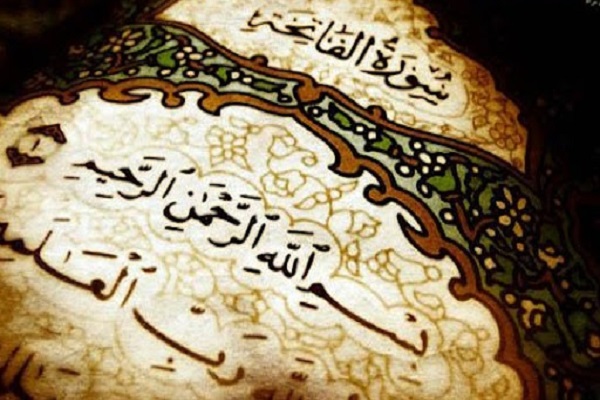 سُورَةُ الفَاتِحَةِ
بِسْمِ ٱللَّهِ ٱلرَّحْمَٰنِ ٱلرَّحِيمِ ١
رَبِّ ٱلْعَٰلَمِي